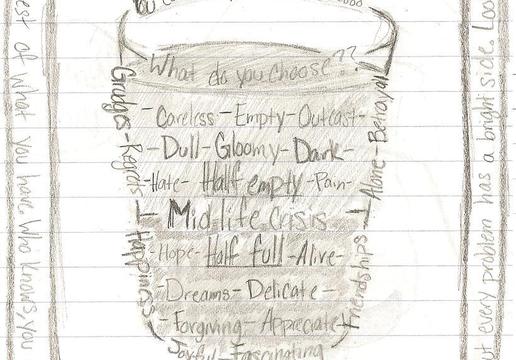 What do you choose??
- Careless - Empty - Outcast -
- Dull - Gloomy - Dark -
- Hate - Half empty - Pain -
Mid-life Crisis
- Hope - Half full - Alive -
- Dreams - Delicate -
- Forgiving - Appreciate -
Joyful - Fascinating
Grudges - Regrets - Happiness
Alone - Betrayal
Friendships
est of what you have. Who knows, you
t every problem has a bright side. Loo